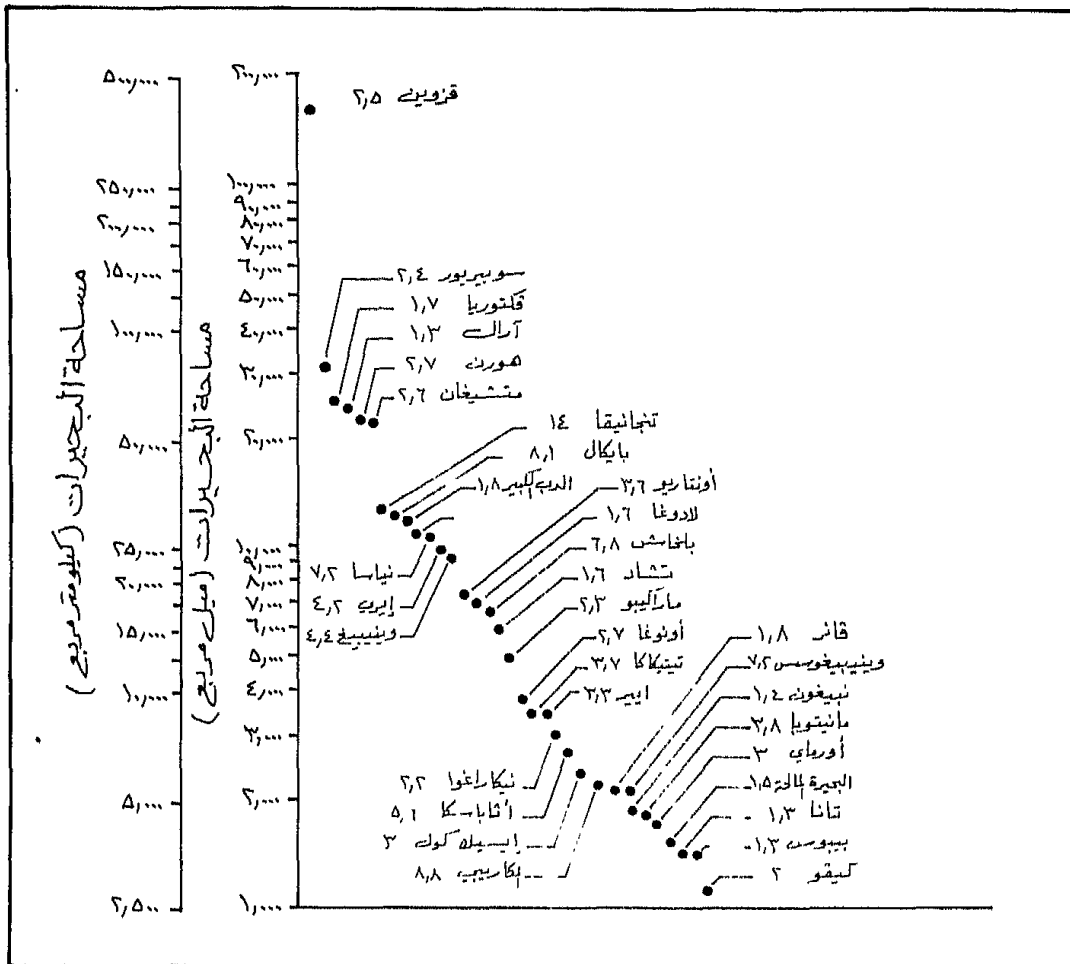 مساحة البحيرات (كيلومتر مربع)
٥٠٠,٠٠٠
٢٥٠,٠٠٠
٢٠٠,٠٠٠
١٥٠,٠٠٠
١٠٠,٠٠٠
٥٠,٠٠٠
٢٥,٠٠٠
٢٠,٠٠٠
١٥,٠٠٠
١٠,٠٠٠
٥,٠٠٠
٢,٥٠٠
مساحة البحيرات (ميل مربع)
٢٠٠,٠٠٠
١٠٠,٠٠٠
٩٠,٠٠٠
٨٠,٠٠٠
٧٠,٠٠٠
٦٠,٠٠٠
٥٠,٠٠٠
٤٠,٠٠٠
٣٠,٠٠٠
٢٠,٠٠٠
١٠,٠٠٠
٩,٠٠٠
٨,٠٠٠
٧,٠٠٠
٦,٠٠٠
٥,٠٠٠
٤,٠٠٠
٣,٠٠٠
٢,٠٠٠
١,٠٠٠
قزوين ٢,٥
سوبيريور ٢,٤
فكتوريا ١,٧
آرال ١,٣
هورن ٢,٧
متشيغان ٢,٦
تنجانيقا ١٤
بايكال ٨,١
الدب الكبير ١,٨
نياسا ٧,٢
إيري ٤,٢
وينيبيغ ٤,٤
أونتاريو ٣,٦
لادوغا ١,٦
بلخاش ٦,٨
تشاد ١,٦
ماراكيبو ٢,٣
أونوغا ٢,٧
تيتيكاكا ٣,٧
ايير ٣,٣
نيكاراغوا ٢,٢
أثاباسكا ٥,٦
إيسيك كول ٣
٨,٨
فانر ١,٨
وينيبيغوسس ٧,٢
نبيغون ١,٤
مانيتوبا ٣,٨
أورماي ٣
البحيرة المالحة ١,٥
تانا ١,٣
بيبوس ١,٣
كيفو ٢